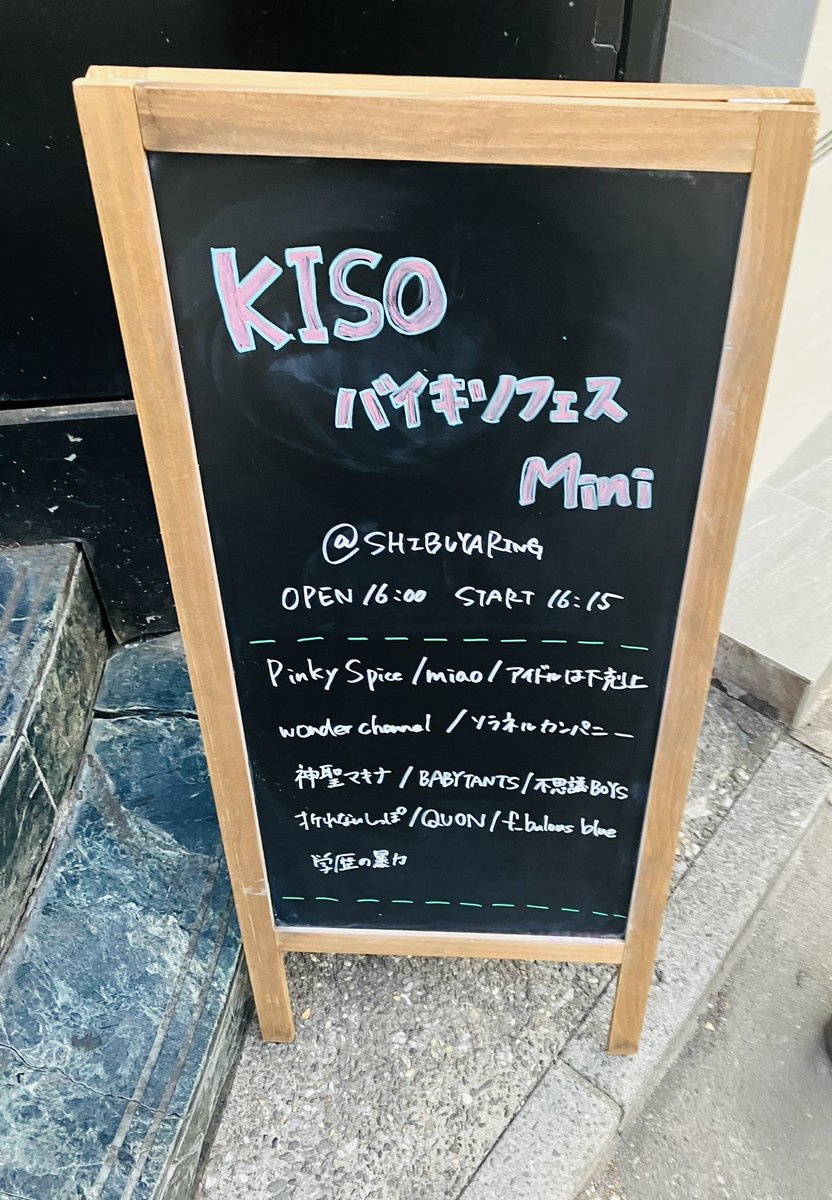 KISO
バイキソフェス
Mini
@SHIBUYARING
OPEN 16:00 START 16:15
Pinky Spice/miao/アイドルは下剋上
wonder channel /ソラネルカンパニー
神聖マキナ/BABYTANTS/不思議BOYS
オケれないしっぽ/QUON/f_bulous blue
学歴の暴力